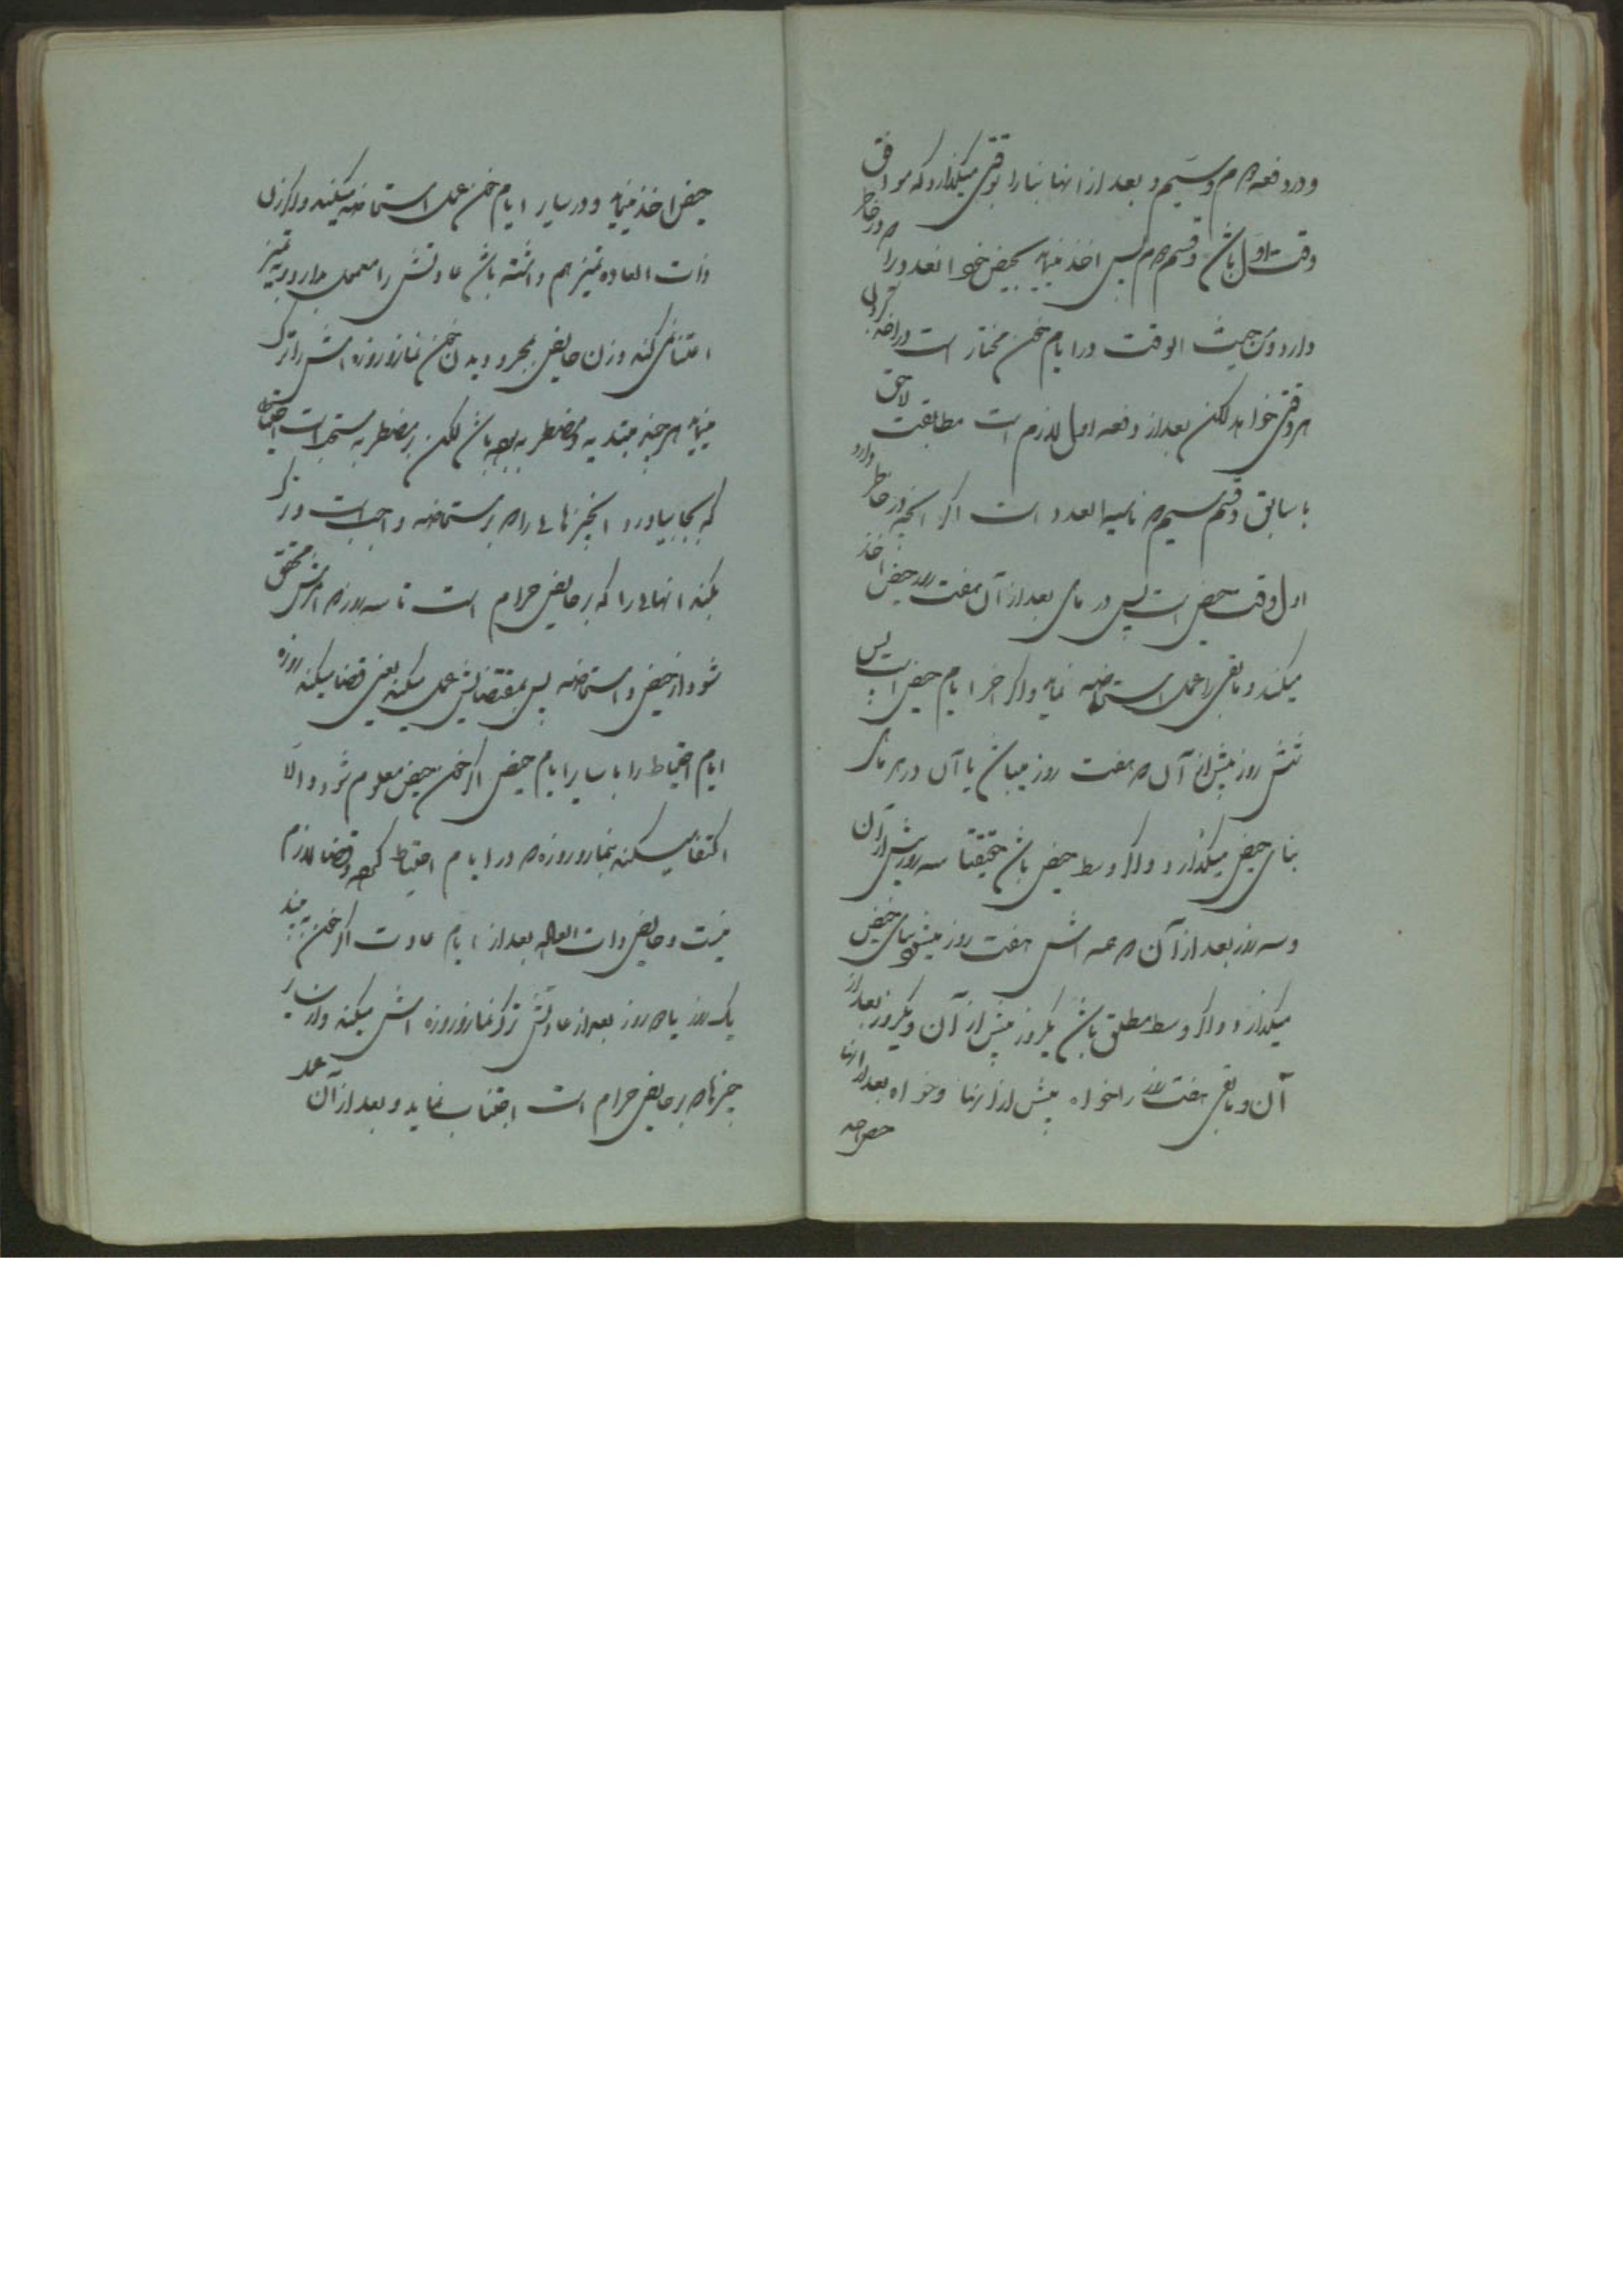 و در دفعه دوم و سیم و بعد از انها بنا را بوقتی میکذارد که موافق
وقت اول باشد و قسم دوم پس اخذ مینماید بحیض خود انعدد را که در خاطر
دارد و من حیث الوقت در ایام خون مختار است در اخذ کردن
هر وقتی خواهد لکن بعد از دفعه اول لازم است مطابقت لاحق
با سابق و قسم سیم که ناسیه العدد است اکر انچه در خاطر دارد
اول وقت حیض است پس در ماهی بعد از آن هفت روز حیض اخذ
میکند و باقی را عمل استحاضه نماید و اکر اخر ایام حیض است پس
شش روز پیش از آن که هفت روز میباشد با آن در هر ماه
بنای حیض میکذارد و اکر وسط حیض باشد حقیقتا سه روز پیش از آن
و سه روز بعد از آن که همه اش هفت روز میشود بنای حیض
میکذارد و اکر وسط مطلق باشد یکروز پیش از آن و یکروز بعد از
آن و باقی هفت روز را خواه پیش از اینها و خواه بعد از اینها
حیض اخذ مینماید و در سایر ایام خون عمل استحاضه میکند و اکر زن
ذات العاده تمیز هم داشته باشد عادتش را معمول دارد و به تمیز
اعتنا نمی کند و زن حایض بمجرد دیدن خون نماز و روزه اش را ترک
مینماید هر چند مبتدیه و مضطربه بوده باشد لکن بر مضطربه مستحب است احتیاط
که بجا بیاورد انچیزهائی را که بر مستحاضه واجب است و ترک
بکند انهائی را که بر حایض حرام است تا سه روز که امرش محقق
شود از حیض و استحاضه پس بمقتضایش عمل میکند یعنی قضا میکند روزه
ایام احتیاط را با سایر ایام حیض اکر خون حیض معلوم شود و الّا
اکتفا میکند بنماز و روزه که در ایام احتیاط کرده و قضا لازم
نیست و حایض ذات العاده بعد از ایام عادت اکر خون به بیند
یک روز یا دو روز بعد از عادتش ترک نماز و روزه اش میکند و از سایر
چیزها که بر حایض حرام است اجتناب نماید و بعد از آن عمل